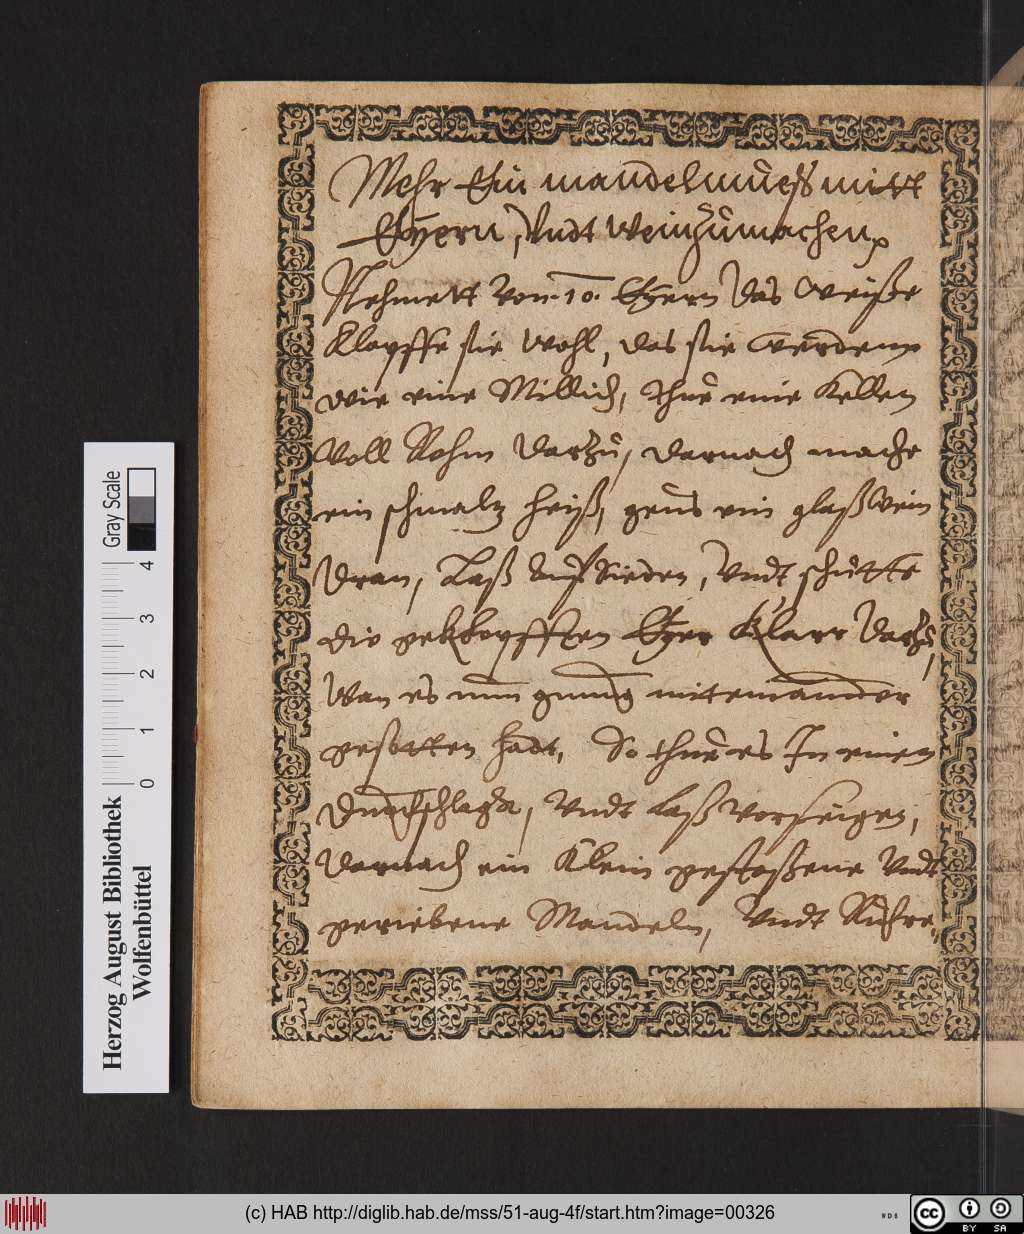 Mehr Ein mandelmueß mitt
Eÿern, Vndt Wein Zumachen
Nehmett Von .10. Eÿern Das Weiße
Klopffe sie Wohl, das sie Werdenn
wie eine Millich, thue eine Kellen
Voll Rohm Darzu, darnach mache
ein schmaltz heiß, geus ein glaß Wein
Dran, Laß Auf Sieden, Vndt schütte
die geklopfften Eÿer Klarr Darzu,
Wan es nun gnung mitteinander
gesotten hadt, So thue es In einen
Durchschlagk, Vndt Laß Vorseigen,
Darnach ein Klein gestoßene Vndt
geriebene Mandeln, Vndt Rühre,
Herzog August Bibliothek
Wolfenbüttel
0 1 2 3 4
Gray Scale
(c) HAB http://diglib.hab.de/mss/51-aug-4f/start.htm?image=00326
WDB
cc BY SA